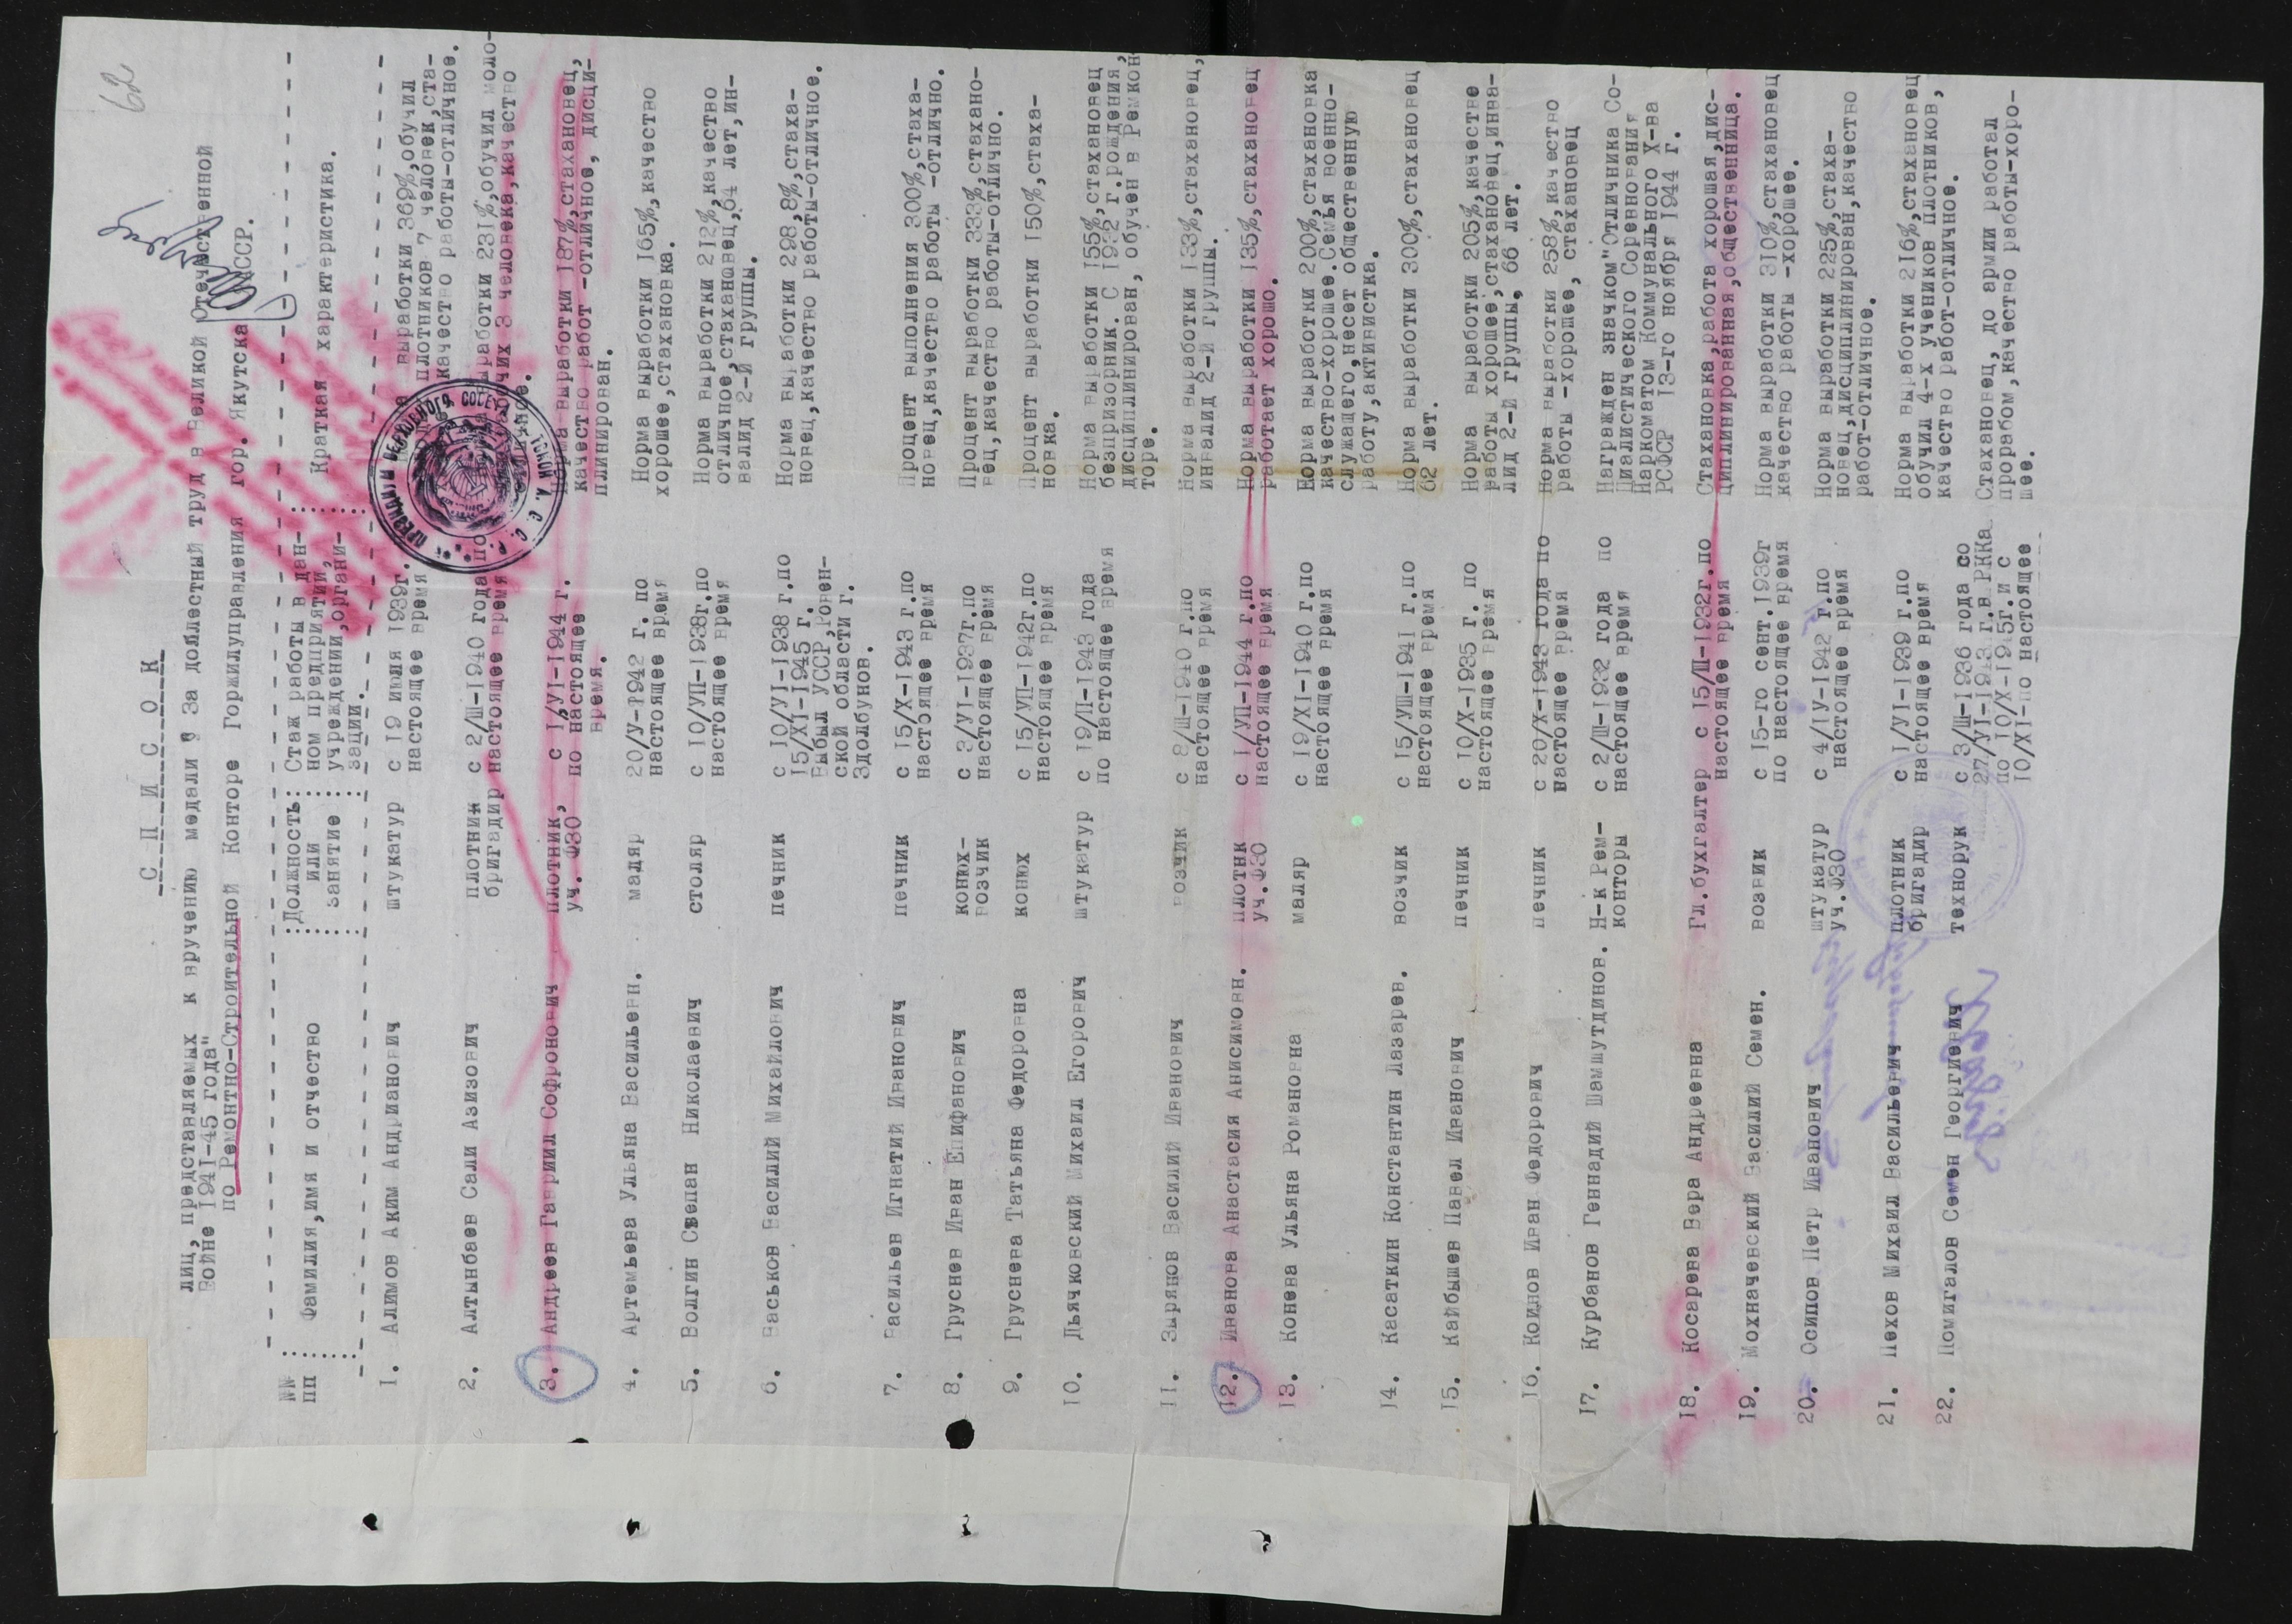 62
С П И С О К
лиц, представляемых к вручению медали " За доблестный труд в Великой Отечественной
Войне 1941-45 года"
по Ремонтно-Строительной Конторе Горжилуправления гор. Якутска ЯАССР.
№№ : Фамилия,имя и отчество : Должность : Стаж работы в дан- : Краткая характеристика.
пп : или : ном предприятии,
занятие : учреждении,органи-
зации.
1. Алимов Аким Андрианович штукатур с 19 июля 1939г. выработки 369%,обучил
настоящее время плотников 7 человек,ста-
качество работы-отличное.
2. Алтынбаев Сали Азизович плотник с 2/Ш-1940 года по выработки 231%,обучил моло-
бригадир настоящее время рабочих 3 человека,качество
3. Андреев Гавриил Софронович плотник, с 1/УI-1944 г. Норма выработки 187%,стахановец,
уч. ФЗО по настоящее качество работ -отличное, дисци-
время. плинирован.
4. Артемьева Ульяна Васильевн. маляр 20/У-1942 г. по Норма выработки 165%,качество
настоящее время хорошее,стахановка.
5. Волгин Степан Николаевич столяр с 10/УП-1938г.по Норма выработки 212%,качество
настоящее время отличное,стахановец,64 лет,ин-
валид 2-й группы.
6. Васьков Василий Михайлович печник с 10/УI-1938 г.по Норма выработки 298,8%,стаха-
15/ХI-1945 г. новец,качество работы-отличное.
Выбыл УССР,Ровен-
ской области г.
Здолбунов.
7. Васильев Игнатий Иванович печник с 15/Х-1943 г.по Процент выполнения 300%,стаха-
настоящее время новец,качество работы -отлично.
8. Груснев Иван Епифанович конюх- с 3/УI-1937г.по Процент выработки 333%,стахано-
возчик настоящее время вец,качество работы-отлично.
9. Груснева Татьяна Федоровна конюх с 15/УП-1942г.по Процент выработки 150%,стаха-
настоящее время новка.
10. Дьячковский Михаил Егорович штукатур с 19/П-1943 года Норма выработки 155%,стахановец
по настоящее время безпризорник. С 1932 г.рождения,
дисциплинирован, обучен в Ремкон
торе.
11. Зырянов Василий Иванович возчик с 8/Ш-1940 г.по Норма выработки 133%,стахановец,
настоящее время инвалид 2-й группы.
12. Иванова Анастасия Анисимовн. плотнк с 1/УП-1944 г.по Норма выработки 135%,стахановец
уч.ФЗО настоящее время работает хорошо.
13. Конева Ульяна Романовна маляр с 19/ХI-1940 г.по Норма выработки 200%,стахановка
настоящее время качество-хорошее.Семья военно-
служащего,несет общественную
работу,активистка.
14. Касаткин Константин Лазарев. возчик с 15/УШ-1941 г.по Норма выработки 300%,стахановец
настоящее время 62 лет.
15. Кайбышев Павел Иванович печник с 10/Х-1935 г. по Норма выработки 205%,качестве
настоящее время работы хорошее,стахановец,инва-
лид 2-й группы, 66 лет.
16. Коинов Иван Федорович печник с 20/Х-1943 года по Норма выработки 258%,качество
настоящее время работы -хорошее, стахановец
17. Курбанов Геннадий Шамшутдинов. Н-к Рем- с 2/Ш-1932 года по Награжден значком"Отличника Со-
конторы настоящее время циалистического Соревнования
Наркоматом Коммунального Х-ва
РСФСР 13-го ноября 1944 г.
18. Косарева Вера Андреевна Гл.бухгалтер с 15/Ш-1932г.по Стахановка,работа хорошая,дис-
настоящее время циплинированная,общественница.
19. Мохначевский Василий Семен. возвик с 15-го сент.1939г Норма выработки 310%,стахановец
по настоящее время качество работы -хорошее.
20. Осипов Петр Иванович штукатур с 4/IУ-1942 г.по Норма выработки 225%,стаха-
уч.ФЗО настоящее время новец,дисциплинирован,качество
работ-отличное.
21. Пехов Михаил Васильевич плотник с 1/УI-1939 г.по Норма выработки 216%,стахановец
бригадир настоящее время обучил 4-х учеников плотников,
качество работ-отличное.
22. Помигалов Семен Георгиевич технорук с 3/Ш-1936 года со Стахановец, до армии работал
27/УI-1943 г.в РККА прорабом,качество работы-хоро-
по 10/Х-1945г.и с шее.
10/ХI-по настоящее